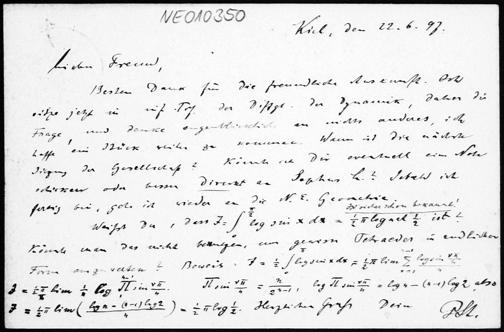 NEO10350
Kiel, den 22.6.97.
Lieber Freund,
Besten Dank für die freundliche Auskunft. Ich
sitze jetzt in der Diffgl. der Dynamik, daher die
Frage, und denke augenblicklich an nichts anderes, ich
hoffe ein Stück weiter zu kommen. Wann ist die nächste
Sitzung der Gesellschaft? Könnte ich Dir eventuell eine Note
schicken oder besser direct an Sophus L.? Sobald ich
fertig bin, gehe ich wieder an die N. E. Geometrie.
Inzwischen bekannt!
Weißt Du, dass J = ∫ log sin x dx = ½π log ½ ist?
Könnte man das nicht benutzen, um gewisse Tetraeder in endlicher
Form auszudrücken? Beweis. J = ½ ∫ log sin x dx = ½π lim log sin
J = ½π lim 1/n log Π sin νπ/n. Π sin νπ/n = n/2^(n-1), log Π sin νπ/n = log n - (n-1) log 2, also
J = ½π lim (log n - (n-1) log 2)/n = ½π log ½. Herzlichen Gruß Dein
P. St.